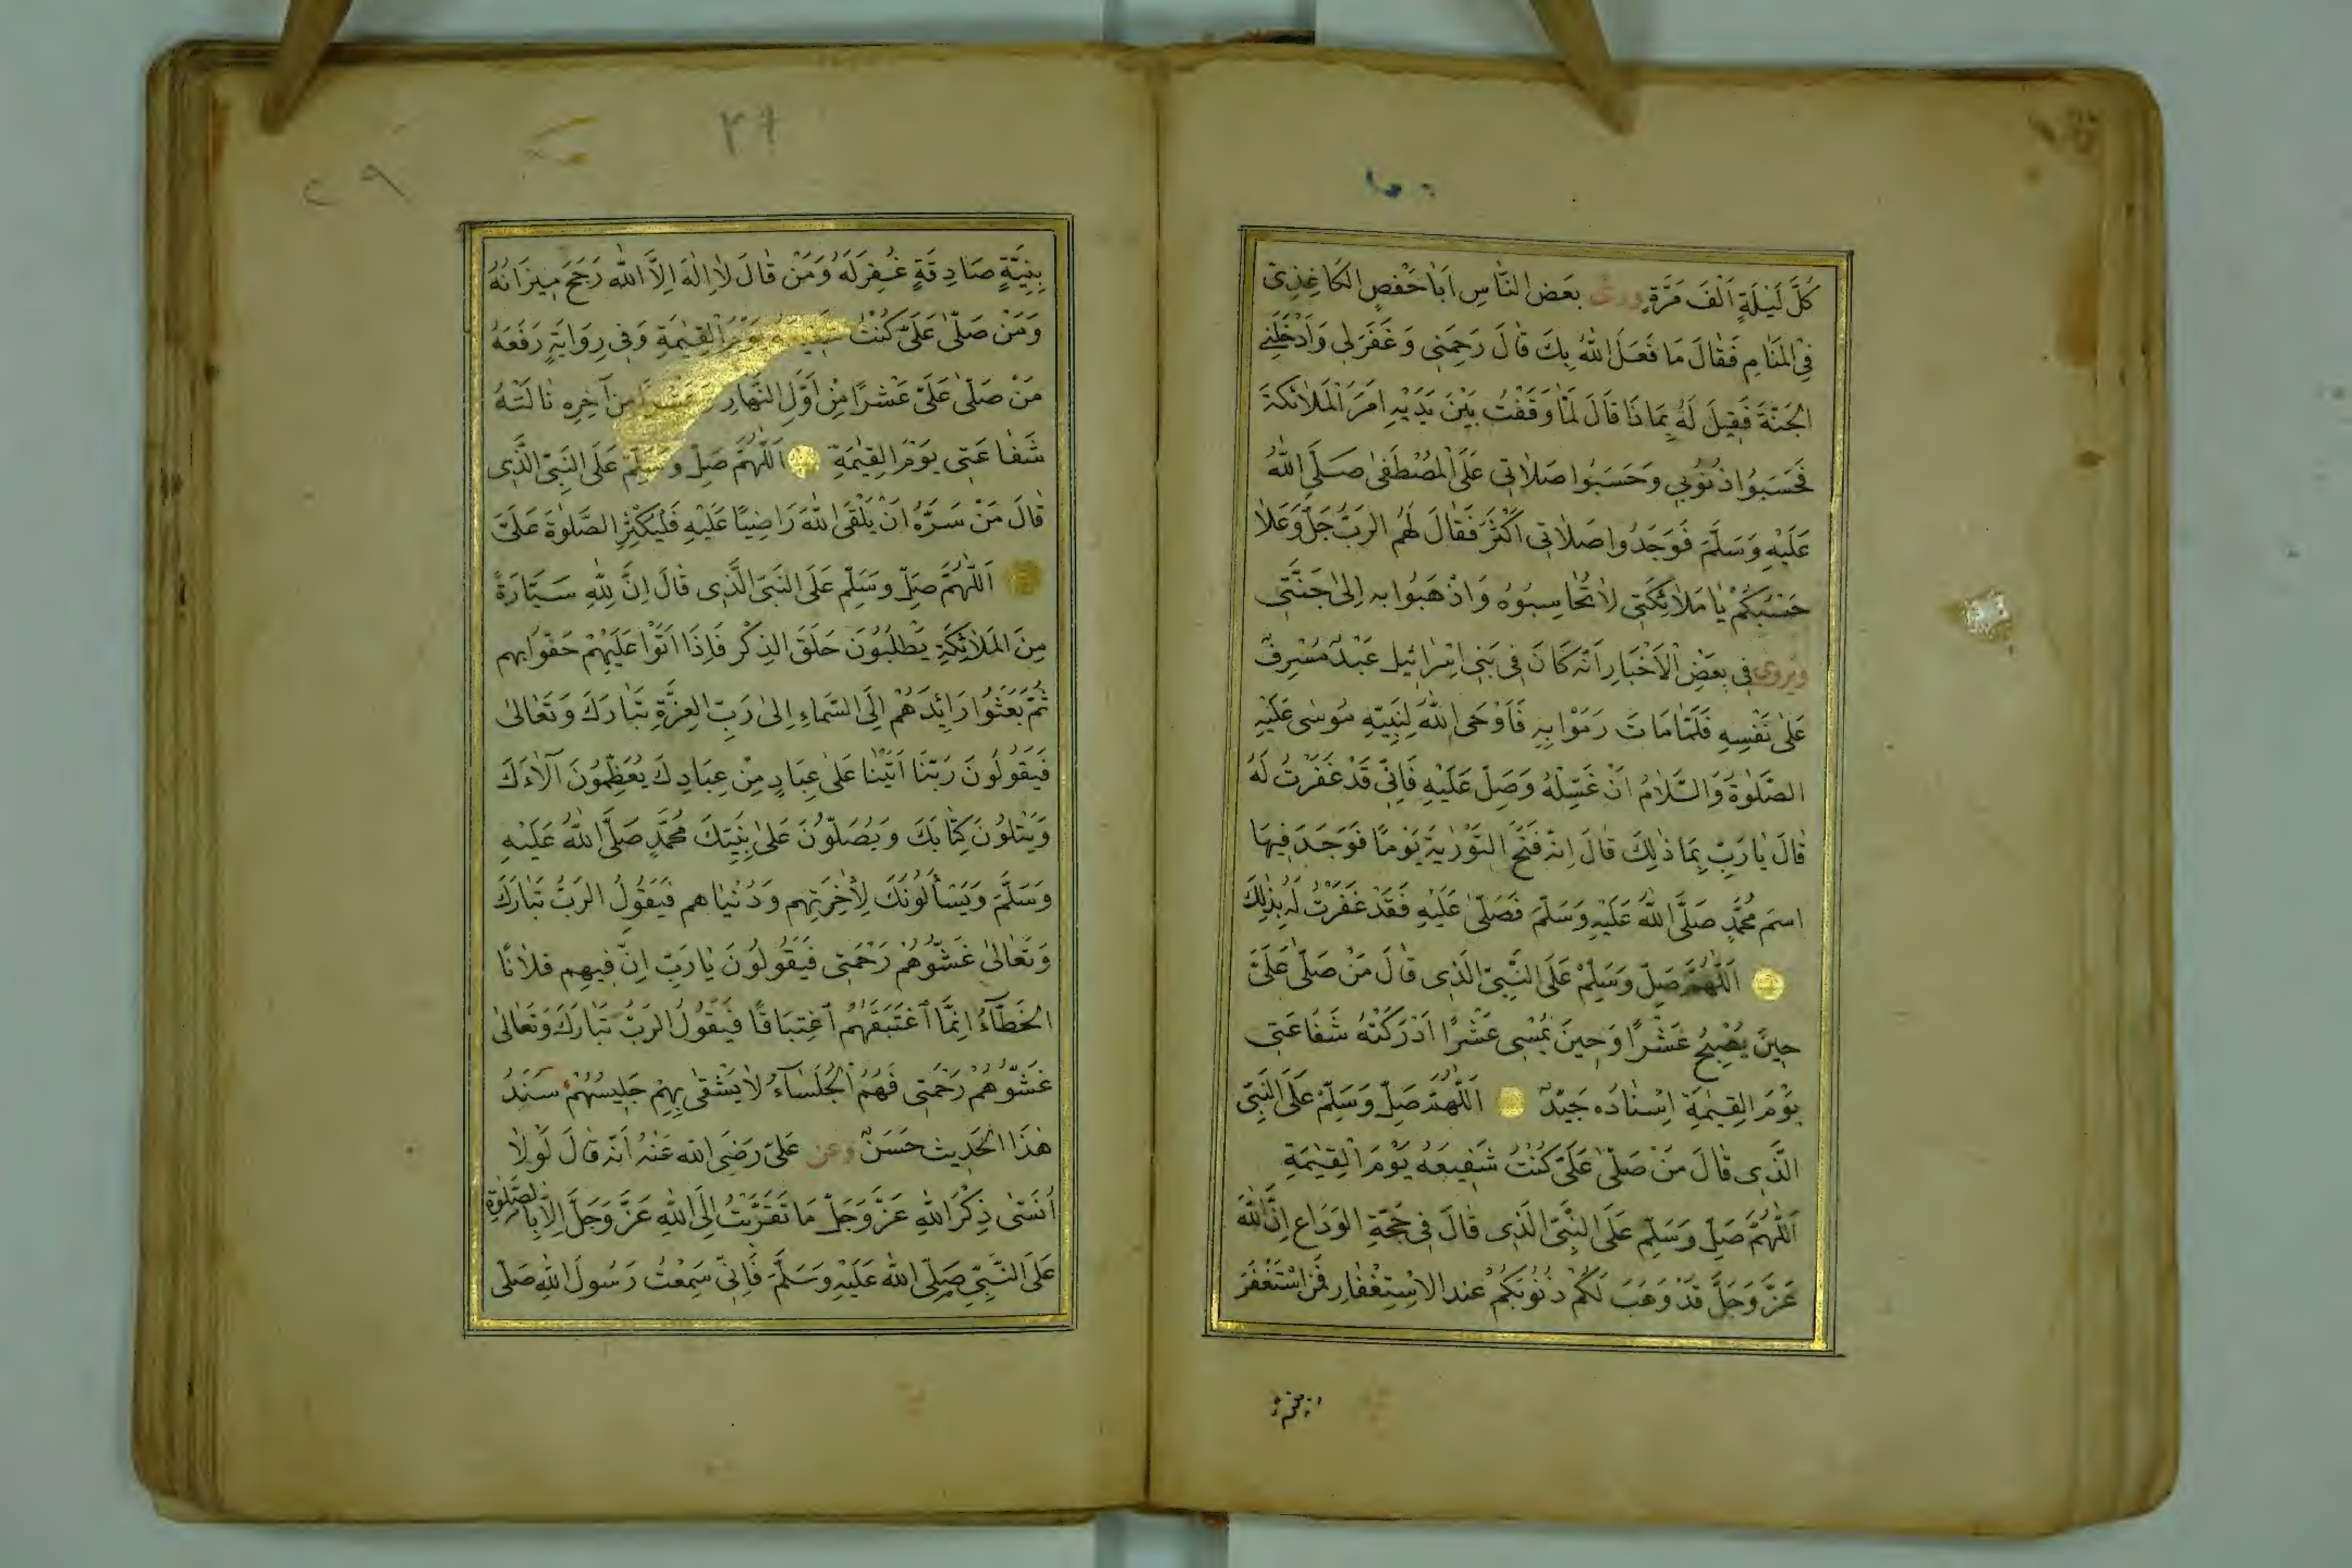 كُلَّ لَيْلَةٍ اَلْفَ مَرَّةٍ وروى بَعَضُ النَّاسِ اَبَا حَفْصٍ الكَاغِذِىّ
فِى الْمَنَامِ فَقَالَ مَا فَعَلَ اللهُ بِكَ قَالَ رَحِمَنِى وَغَفَرَ لِى وَاَدْخَلَنِى
الجَنَّةَ فَقِيلَ لَهُ بِمَا ذَا قَالَ لَمَّا وَقَفْتُ بَيْنَ يَدَيْهِ اَمَرَ الْمَلَائكَةَ
فَحَسَبُوا ذُنُوبِى وَحَسَبُوا صَلَاتِى عَلَى الْمُصْطَفٰى صَلَّى اللهُ
عَلَيْهِ وَسَلَّمَ فَوَجَدُوا صَلَاتِى اَكْثَرَ فَقَالَ لَهُم الرَبُّ جَلَّ وَعَلَا
حَسْبُكُمْ يَا مَلَائِكَتِى لَا تُحَاسِبُوهُ وَاذْهَبُوا بِهِ اِلٰى جَنَّتِى
ويُروى فِى بَعْضِ الْاَخْبَارِ اَنَّه كَانَ فِى بَنِى اِسْرَائِيلَ عَبْدٌ مُسْرِفٌ
عَلٰى نَفْسِهِ فَلَمَّا مَاتَ رَمَوْا بِهِ فَاَوْحَى اللهُ لِنَبِيِّهِ مُوسٰى عَلَيْهِ
الصَّلٰوةُ وَالسَّلَامُ اَنْ غَسِّلْهُ وَصَلِّ عَلَيْهِ فَاِنِّى قَدْ غَفَرْتُ لَهُ
قَالَ يَا رَبِّ بِمَا ذٰلِكَ قَالَ اِنَّه فَتَحَ التَّوْرٰيةَ يَوْمًا فَوَجَدَ فِيهَا
اسمَ مُحَمَّدٍ صَلَّى اللهُ عَلَيْهِ وَسَلَّمَ فَصَلّٰى عَلَيْهِ فَقَدْ غَفَرْتُ لَهُ بِذٰلِكَ
اَللّٰهُمَّ صَلِّ وَسَلِّمْ عَلَى النَّبِىِّ الَّذِى قَالَ مَنْ صَلّٰى عَلَىَّ
حِينَ يُصْبِحُ عَشْرًا وَحِينَ يُمْسِى عَشْرًا اَدْرَكَتْهُ شَفَاعَتِى
يَوْمَ القِيٰمَةِ اِسْنَادُه جَيِّدٌ اَللّٰهُمَّ صَلِّ وَسَلِّمْ عَلَى النَّبِىِّ
الَّذِى قَالَ مَنْ صَلّٰى عَلَىَّ كُنْتُ شَفِيعَهُ يَوْمَ الْقِيٰمَةِ
اَللّٰهُمَّ صَلِّ وَسَلِّمْ عَلَى النَّبِىِّ الَّذِى قَالَ فِى حَجَّةِ الوَدَاعِ اِنَّ اللهَ
عَزَّ وَجَلَّ قَدْ وَهَبَ لَكُمْ ذُنُوبَكُمْ عِندَ الاِسْتِغْفَارِ فَمَنِ اسْتَغْفَرَ
بنية
۲۹
بِنِيَّةٍ صَادِقَةٍ غُفِرَ لَهُ وَمَنْ قَالَ لَا اِلٰهَ اِلَّا اللهُ رَجَحَ مِيزَانُهُ
وَمَنْ صَلّٰى عَلَىَّ كُنْتُ شَفِيعَهُ يَوْمَ القِيٰمَةِ وَفِى رِوَايَةٍ رَفَعَهُ
مَنْ صَلّٰى عَلَىَّ عَشْرًا مِنْ اَوَّلِ النَّهَارِ مِنْ آخِرِهِ نَالَتْهُ
شَفَاعَتِى يَوْمَ القِيٰمَةِ اَللّٰهُمَّ صَلِّ وَسَلِّمْ عَلَى النَّبِىِّ الَّذِى
قَالَ مَنْ سَرَّهُ اَنْ يَلْقَى اللهَ رَاضِيًا عَلَيْهِ فَلْيُكْثِرِ الصَّلٰوةَ عَلَىَّ
اَللّٰهُمَّ صَلِّ وَسَلِّمْ عَلَى النَّبِىِّ الَّذِى قَالَ اِنَّ لِلّٰهِ سَيَّارَةً
مِنَ المَلَائِكَةِ يَطْلُبُونَ حَلَقَ الذِكْرِ فَاِذَا اَتَوْا عَلَيْهِمْ حَفُّوا بهم
ثُمَّ بَعَثُوا رَائِدَهُمْ اِلَى السَّمَاءِ اِلٰى رَبِّ العِزَّةِ تَبَارَكَ وَتَعَالٰى
فَيَقُولُونَ رَبَّنَا اَتَيْنَا عَلٰى عِبَادٍ مِنْ عِبَادِكَ يُعَظِّمُونَ آلَاءَكَ
وَيَتْلُونَ كِتَابَكَ وَيُصَلُّونَ عَلٰى نَبِيِّكَ مُحَمَّدٍ صَلَّى اللهُ عَلَيْهِ
وَسَلَّمَ وَيَسْأَلُونَكَ لِاٰخِرَتِهِم وَدُنْيَاهم فَيَقُولُ الرَبُّ تَبَارَكَ
وَتَعَالٰى غَشُّوهُمْ رَحْمَتِى فَيَقُولُونَ يَا رَبِّ اِنَّ فِيهِم فلَانًا
الخَطَّآءُ اِنَّمَا اَغْتَبَقَهُمُ اغْتِبَاقًا فَيَقُولُ الرَبُّ تَبَارَكَ وَتَعَالٰى
غَشُّوهُمْ رَحْمَتِى فَهُمُ الْجُلَسَآءُ لَا يَشْقٰى بِهِمْ جَلِيسُهُمْ سَنَدُ
هٰذَا الْحَدِيث حَسَنٌ وعن عَلِىٍّ رَضِىَ الله عَنْهُ اَنَّه قَالَ لَوْلَا
اَنْسٰى ذِكْرَ اللهِ عَزَّ وَجَلَّ مَا تَقَرَّبْتُ اِلَى اللهِ عَزَّ وَجَلَّ اِلَّا بِالصَّلٰوةِ
عَلَى النَّبِىِّ صَلَّى اللهُ عَلَيْهِ وَسَلَّمَ فَاِنِّى سَمِعْتُ رَسُولَ اللهِ صَلّى